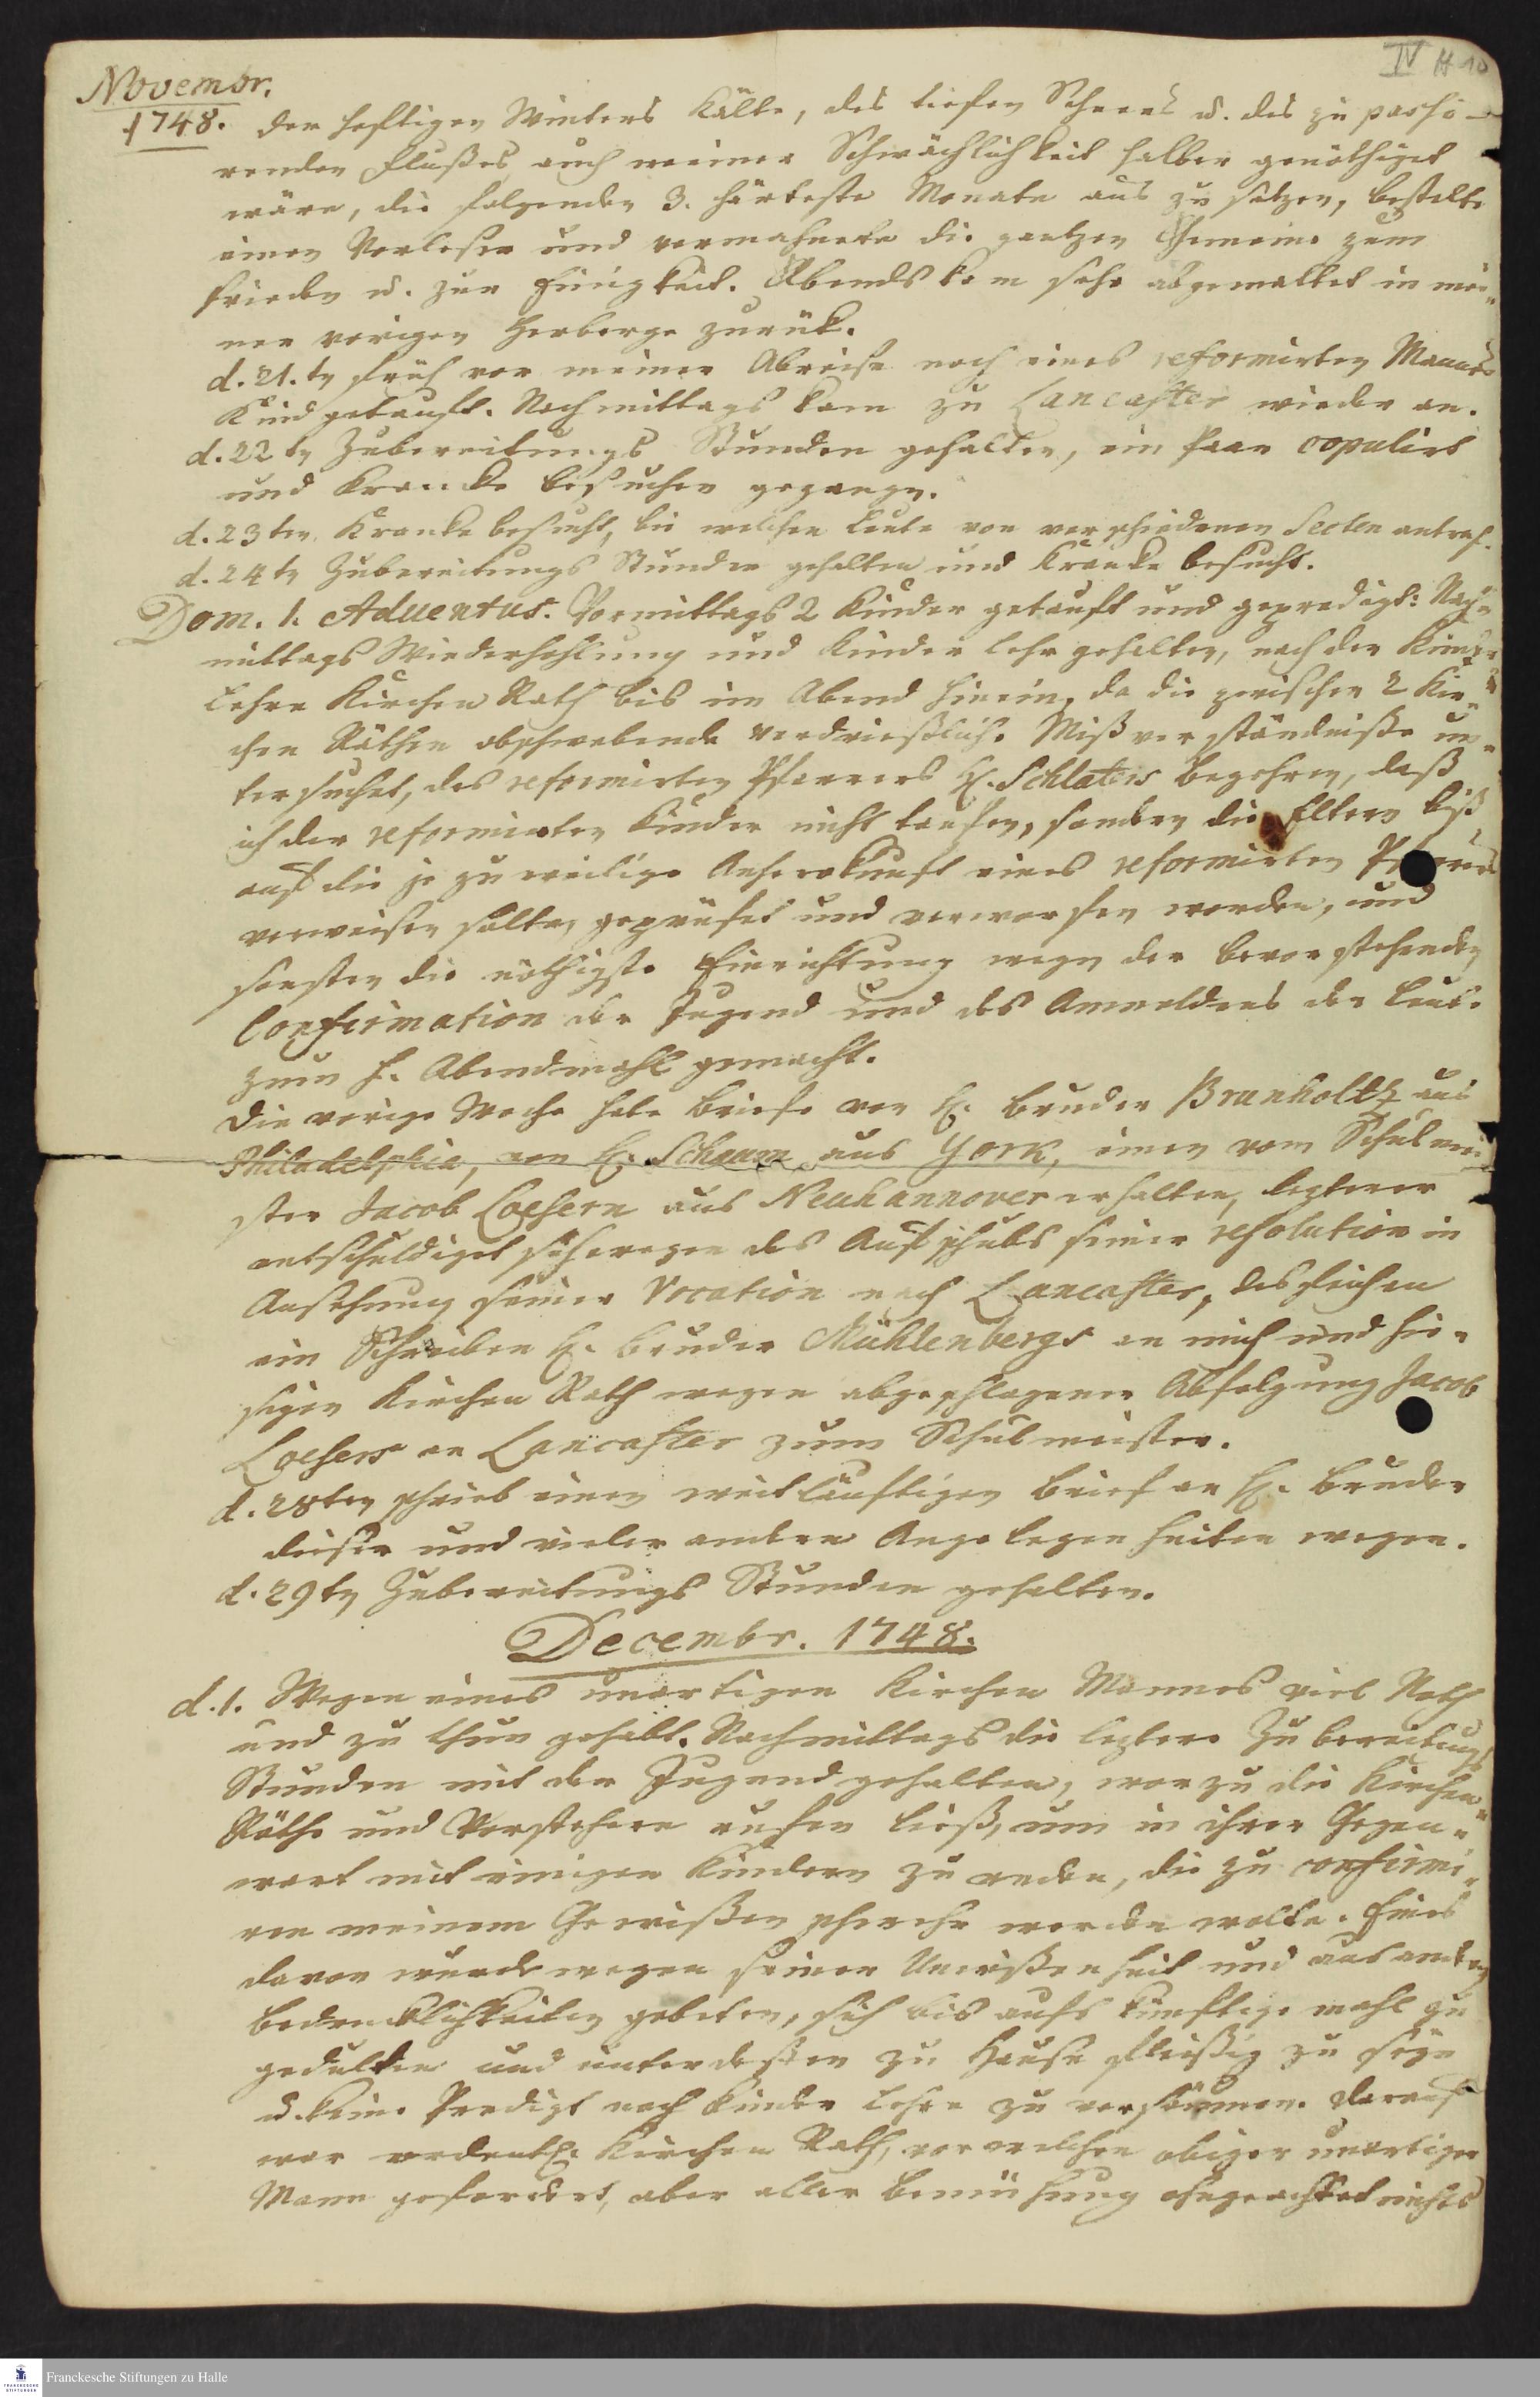 IV H 10
Novembr.
1748. der heftigen Winters Kälte, des tiefen Schnees u. des zu passi-
renden Flußes auch meiner Schwächlichkeit halber genöthiget
wäre, die folgenden 3. härteste Monate aus zu setzen, bestelte
einen Vorleser und vermahnete die gantzen Gemeine zum
Frieden u. zur Einigkeit. Abends kam sehr abgemattet in mei-
ner vorigen Herberge zurük.
d. 21. tn früh vor meiner Abreise noch eines reformirten Mannes
Kind getauft. Nachmittags kam zu Lancaster wieder an.
d. 22 tn Zubereitungs Stunden gehalten, ein Paar copulirt
und Krancke besuchen gegangn.
d. 23 ten Kranke besucht, bei welchen Leute von verschiedenen Secten antraf.
d. 24 tn Zubereitungs Stunden gehalten und Kranke besucht.
Dom. 1. Adventus. Vormittags 2 Kinder getauft und gepredigt: Nach-
mittags Wiederhohlung und Kinder Lehr gehalten, nach der Kinder
Lehre Kirchen Rath bis im Abend hinein, da die zwischen 2 Kir-
chen Räthen obschwebende verdrießlich. Mißverständniße un-
tersuchet, des reformirten Pfarrers H. Schlaters begehren, daß
ich der reformirten Kinder nicht taufen, sondern die Eltern biß
auf die je zu weilige Anherokunft eines reformirten Pfarrers
verweisen solte, geprüfet und verworfen worden, und
sonsten die nöthigste Einrichtung wegn der bevorstehenden
Confirmation der Jugend und des Anmeldens der Leute
zum h. Abendmahl gemacht.
Die vorige Woche habe briefe von H. bruder Brunholtz aus
Philadelphia, von H. Schaum aus York, einen vom Schulmei-
ster Jacob Loesern aus Neuhannover erhalten, lezterer
entschuldiget sich wegen des Aufschubs seiner resolution in
Ansehung seiner Vocation nach Lancaster, desgleichen
ein Schreiben H. bruder Mühlenbergs an mich und hie-
sigen Kirchen Rath wegen abgeschlagener Abfolgung Jacob
Loesers an Lancaster zum Schulmeister.
d. 28 ten schrieb einen weitläuftigen brief an H. bruder
dieser und vieler andern Angelegenheiten wegen.
d. 29 tn Zubereitungs Stunden gehalten.
Decembr. 1748.
d. 1. Wegen eines unartigen Kirchen Mannes viel Noth
und zu thun gehabt. Nachmittags die leztere Zubereitungs
Stunden mit der Jugend gehalten, worzu die Kirchen-
Räthe und Vorstehere rufen ließ, um in ihrer Gegen-
wart mit einigen Kindern zu reden, die zu confirmi-
ren meinem Gewißen schwehr werden wolte. Eines
davon wurde wegen seiner Unwißenheit und aus andern
bedencklichkeiten gebeten, sich bis aufs künftige mahl zu
gedulden und unterdeßen zu Hause fleißig zu seyn
u. keine Predigt noch Kinder Lehre zu versäumen. Darauf
war ordentl. Kirchen Rath, vor welchen obiger unartiger
Mann gefordert, aber aller bemühung ohngeachtet nichts
Franckesche Stiftungen zu Halle